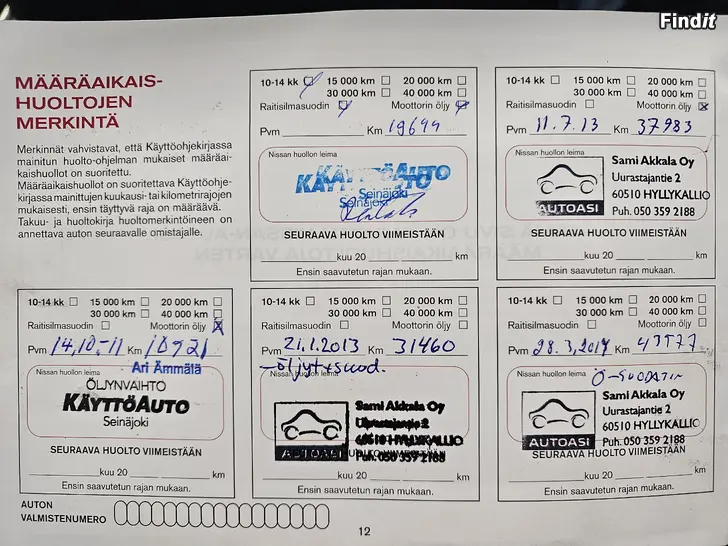 Findit
MÄÄRÄAIKAIS-
HUOLTOJEN
MERKINTÄ
Merkinnät vahvistavat, että Käyttöohjekirjassa
mainitun huolto-ohjelman mukaiset määräai-
kaishuollot on suoritettu.
Määräaikaishuollot on suoritettava Käyttöohje-
kirjassa mainittujen kuukausi- tai kilometrirajojen
mukaisesti, ensin täyttyvä raja on määräävä.
Takuu- ja huoltokirja huoltomerkintöineen on
annettava auton seuraavalle omistajalle.
10-14 kk 15 000 km 20 000 km
30 000 km 40 000 km
Raitisilmasuodin Moottorin öljy
Pvm Km 19699
Nissan huollon leima
KÄYTTÖAUTO
KÄYTTÖAUTO
Seinäjoki
Seinäjoki
SEURAAVA HUOLTO VIIMEISTÄÄN
kuu 20 km
Ensin saavutetun rajan mukaan.
10-14 kk 15 000 km 20 000 km
30 000 km 40 000 km
Raitisilmasuodin Moottorin öljy
Pvm 11.7.13 Km 37983
Nissan huollon leima
Sami Akkala Oy
Uurastajantie 2
60510 HYLLYKALLIO
Puh. 050 359 2188
AUTOASI
SEURAAVA HUOLTO VIIMEISTÄÄN
kuu 20 km
Ensin saavutetun rajan mukaan.
10-14 kk 15 000 km 20 000 km
30 000 km 40 000 km
Raitisilmasuodin Moottorin öljy
Pvm 14,10-11 Km 10921
Ari Ämmälä
Nissan huollon leima
ÖLJYNVAIHTO
KÄYTTÖAUTO
Seinäjoki
SEURAAVA HUOLTO VIIMEISTÄÄN
kuu 20 km
Ensin saavutetun rajan mukaan.
10-14 kk 15 000 km 20 000 km
30 000 km 40 000 km
Raitisilmasuodin Moottorin öljy
Pvm 21.1.2013 Km 31460
-öljyt+suod.
Nissan huollon leima
Sami Akkala Oy
Uurastajantie 2
60510 HYLLYKALLIO
Puh. 050 359 2188
AUTOASI
kuu 20 km
Ensin saavutetun rajan mukaan.
10-14 kk 15 000 km 20 000 km
30 000 km 40 000 km
Raitisilmasuodin Moottorin öljy
Pvm 28.3.2014 Km
Nissan huollon leima
Ö-SUODATIN
Sami Akkala Oy
Uurastajantie 2
60510 HYLLYKALLIO
Puh. 050 359 2188
AUTOASI
SEURAAVA HUOLTO VIIMEISTÄÄN
kuu 20 km
Ensin saavutetun rajan mukaan.
AUTON
VALMISTENUMERO
12